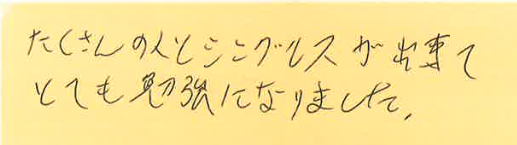 たくさんの人とシングルスが出来て
とても勉強になりました。